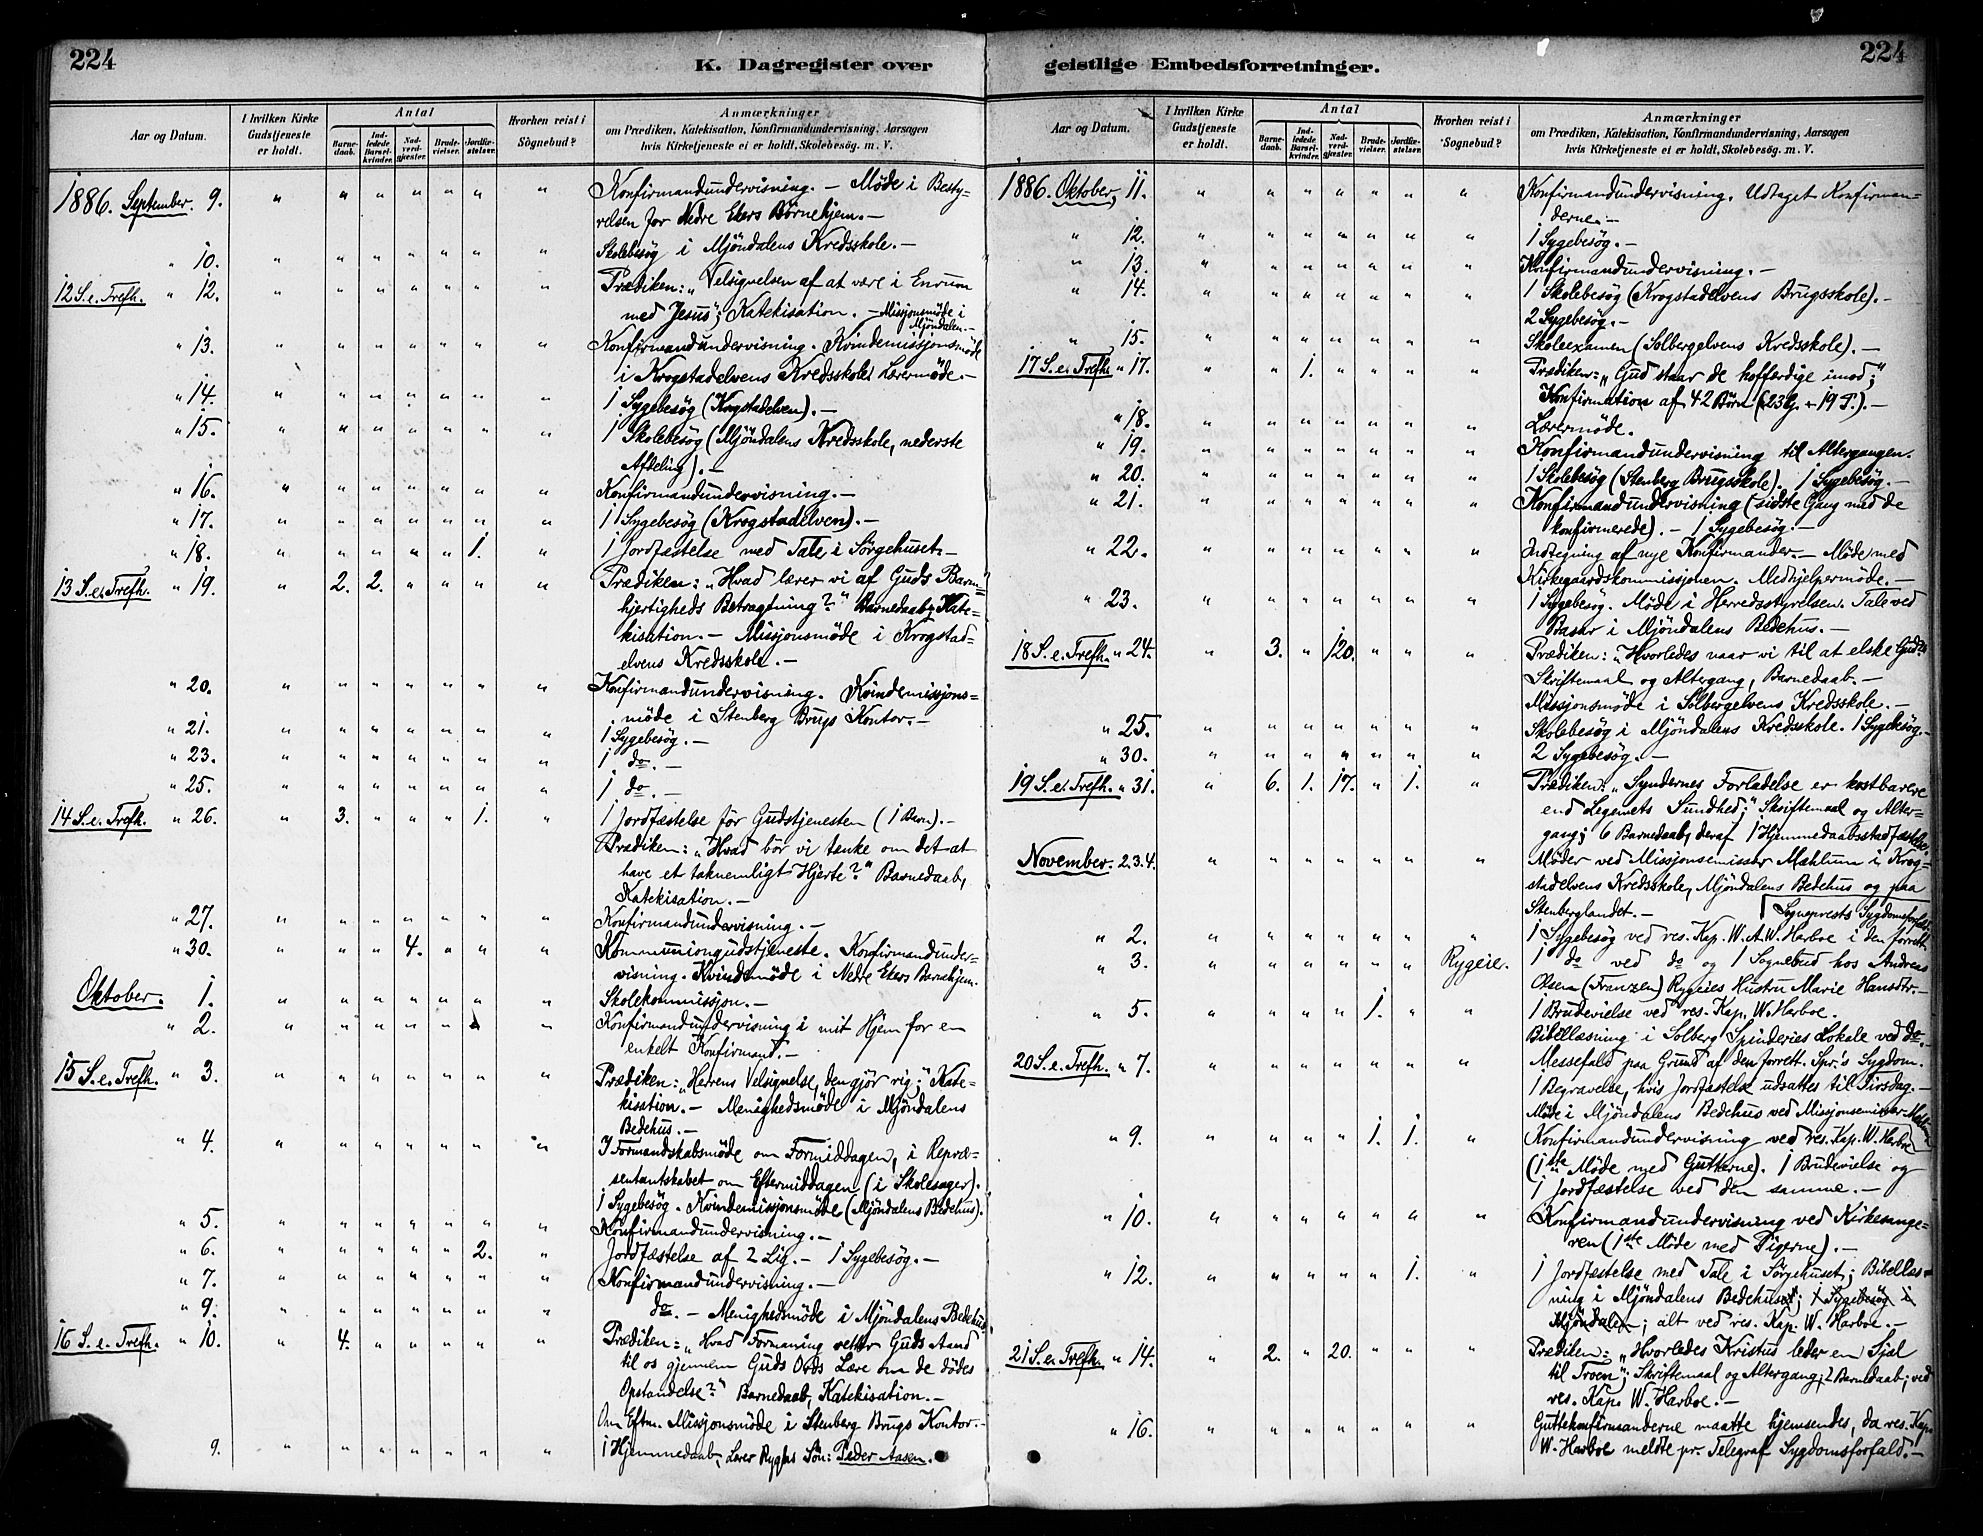 224
K. Dagregister over
Aar og Datum.
I hvilken Kirke Gudstjeneste er holdt.
Antal
Barne-daab.
Ind-ledede Barsel-kvinder.
Nad-verd-gjester.
Brude-vielser.
Jordfæ-stelser.
Hvorhen reist i Sognebud?
Anmærkninger
om Prædiken, Katekisation, Konfirmandundervisning, Aarsagen
hvis Kirketjeneste ei er holdt, Skolebesög. m. V.
1886. September. 9. " " " " " " " Konfirmandundervisning. – Møde i Besty-
relsen for Nedre Ekers Børnehjem. –
" 10. " " " " " " " Skolebesøg i Mjöndalens Kredsskole. –
12 S. e. Trefh. " 12. " " " " " " " Prædiken: „Velsignelsen af at være i Enrum
med Jesus"; Katekisation. – Missjonsmøde i
Mjöndalen. –
" 13. " " " " " " " Konfirmandundervisning. Kvindemissjonsmøde
i Krogstadelvens Kredsskole. Lærermøde. –
" 14. " " " " " " " 1 Sygebesøg (Krogstadelven). –
" 15. " " " " " " " 1 Skolebesøg (Mjöndalens Kredsskole, nederste
Afdeling). –
" 16. " " " " " " " Konfirmandundervisning. –
" 17. " " " " " " " 1 Sygebesøg (Krogstadelven). –
" 18. " " " " " 1. " 1 Jordfæstelse med Tale i Sørgehuset. –
13 S. e. Trefh. " 19. " 2. 2. " " " " Prædiken: „Hvad lærer vi af Guds Barm-
hjertigheds Betragtning?" Barnedaab, Kate-
kisation. – Missjonsmøde i Krogstad-
elvens Kredsskole. –
" 20. " " " " " " " Konfirmandundervisning. Kvindemissjons-
møde i Stenberg Brugs Kontor. –
" 21. " " " " " " " 1 Sygebesøg. –
" 23. " " " " " " " 1 do. –
" 25. " " " " " " " 1 do. –
14 S. e. Trefh. " 26. " 3. " " " 1. " 1 Jordfæstelse før Gudstjenesten (1 Barn). –
Prædiken: „Hvad bör vi tænke om det at
have et taknemligt Hjerte?" Barnedaab,
Katekisation. –
" 27. " " " " " " " Konfirmandundervisning. –
" 30. " " " 4. " " " Kommuniongudstjeneste. Konfirmandunder-
visning. Kvindemøde i Nedre Ekers Barnehjem.
Oktober. 1. " " " " " " " Skolekommissjon. –
" 2. " " " " " " " Konfirmandundervisning i mit Hjem for en
enkelt Konfirmand. –
15 S. e. Trefh. " 3. " " " " " " " Prædiken: „Herrens Velsignelse, den gjör rig." Kate-
kisation. – Menighedsmøde i Mjöndalens
Bedehus. –
" 4. " " " " " " " I Formandskabsmøde om Formiddagen, i Repræ-
sentantskabet om Eftermiddagen (i Skolesager).
1 Sygebesög. Kvindemissjonsmøde (Mjöndalens Bedehus).
" 5. " " " " " " " Konfirmandundervisning. –
" 6. " " " " " 2. " Jordfæstelse af 2 Lig. – 1 Sygebesøg. –
" 7. " " " " " " " Konfirmandundervisning. –
" 9. " " " " " " " do. – Menighedsmøde i Mjöndalens Bedehus.
16 S. e. Trefh. " 10. " 4. " " " " " Prædiken: „Hvad Formaning retter Guds Aand
til os gjennem Guds Ords Lære om de dödes
Opstandelse?" Barnedaab, Katekisation. –
Om Eftm. Missjonsmøde i Stenberg Brugs Kontor. –
9. " " " " " " " 1 Hjemmedaab, Lærer Ryghs Sön: Peder Aasen.
224
geistlige Embedsforretninger.
Aar og Datum.
I hvilken Kirke Gudstjeneste er holdt.
Antal
Barne-daab.
Ind-ledede Barsel-kvinder.
Nad-verd-gjester.
Brude-vielser.
Jordfæ-stelser.
Hvorhen reist i Sognebud?
Anmærkninger
om Prædiken, Katekisation, Konfirmandundervisning, Aarsagen
hvis Kirketjeneste ei er holdt, Skolebesög. m. V.
1886. Oktober, 11. " " " " " " " Konfirmandundervisning. Udtaget Konfirman-
derne. –
" 12. " " " " " " " 1 Sygebesøg. –
" 13. " " " " " " " Konfirmandundervisning. –
" 14. " " " " " " " 1 Skolebesøg (Krogstadelvens Brugsskole). –
2 Sygebesøg. –
" 15. " " " " " " " Skoleexamen (Solbergelvens Kredsskole). –
17 S. e. Trefh. " 17. " " 1. " " " " Prædiken: „Gud staar de hoffærdige imod;"
Konfirmation af 42 Børn (23 G. + 19 P.). –
" 18. " " " " " " " Lærermøde.
" 19. " " " " " " " Konfirmandundervisning til Altergangen.
" 20. " " " " " " " 1 Skolebesøg (Stenberg Brugsskole). 1 Sygebesøg. –
" 21. " " " " " " " Konfirmandundervisning (sidste Gang med de
konfirmerede). – 1 Sygebesøg. –
" 22. " " " " " " " Indtegning af nye Konfirmander. – Møde med
Kirkegaardskommissjonen. Medhjelpermøde. –
" 23. " " " " " " " 1 Sygebesøg. Møde i Herredsstyrelsen. Tale ved
Basar i Mjöndalens Bedehus. –
18 S. e. Trefh. " 24. " 3. " 120. " " " Prædiken: „Hvorledes naar vi til at elske Gud?"
Skriftemaal og Altergang, Barnedaab. –
Missjonsmøde i Solbergelvens Kredsskole. –
" 25. " " " " " " " Skolebesøg i Mjöndalens Kredsskole. 1 Sygebesøg. –
" 30. " " " " " " " 2 Sygebesøg. –
19 S. e. Trefh. " 31. " 6. 1. 17. " 1. " Prædiken: „Syndernes Forladelse er kostbarere
end Legemets Sundhed;" Skriftemaal og Alter-
gang; 6 Barnedaab, deraf 1 Hjemmedaabsstadfæstelse.
November. 2.3.4. " " " " " " " Møder ved Missjonsemissær Mæhlum i Krog-
stadelvens Kredsskole, Mjöndalens Bedehus og paa
Stenberglandet. –
" 2. " " " " " " " 1 Sygebesøg ved res. Kap. W. A. W. Harboe i den forrett.
Sogneprests Sygdomsforfald.
" 3. " " " " " " Rygeie. 1 do ved do og 1 Sognebud hos Andreas
Olsen (Franzen) Rygeies Hustru Marie Hansdtr. –
" 5. " " " " 1. " " 1 Brudevielse ved res. Kap. W. Harboe.
Bibellæsning i Solberg Spinderies Lokale ved do. –
20 S. e. Trefh. " 7. " " " " " " " Messefald paa Grund af den forrett. Spr.'s Sygdom.
1 Begravelse, hvis Jordfæstelse udsattes til Tirsdag. –
Møde i Mjöndalens Bedehus ved Missjonsemissær Mæhlum
" 9. " " " " 1. 1. " Konfirmandundervisning ved res. Kap. W. Harboe
(1ste Møde med Gutterne). 1 Brudevielse og
1 Jordfæstelse ved den samme. –
" 10. " " " " " " " Konfirmandundervisning ved Kirkesange-
ren (1ste Møde med Pigerne). –
" 12. " " " " " 1. " 1 Jordfæstelse med Tale i Sørgehuset; Bibellæs-
ning i Mjöndalens Bedehuset; 1 Sygebesøg i
Mjöndalen; alt ved res. Kap. W. Harboe. –
21 S. e. Trefh. " 14. " 2. " 20. " " " Prædiken: „Hvorledes Kristus leder en Sjæl
til Troen"; Skriftemaal og Altergang; 2 Barnedaab; ved
res. Kap. W. Harboe. –
" 16. " " " " " " " Guttekonfirmanderne maatte hjemsendes, da res. Kap.
W. Harboe meldte pr. Telegraf Sygdomsforfald. –